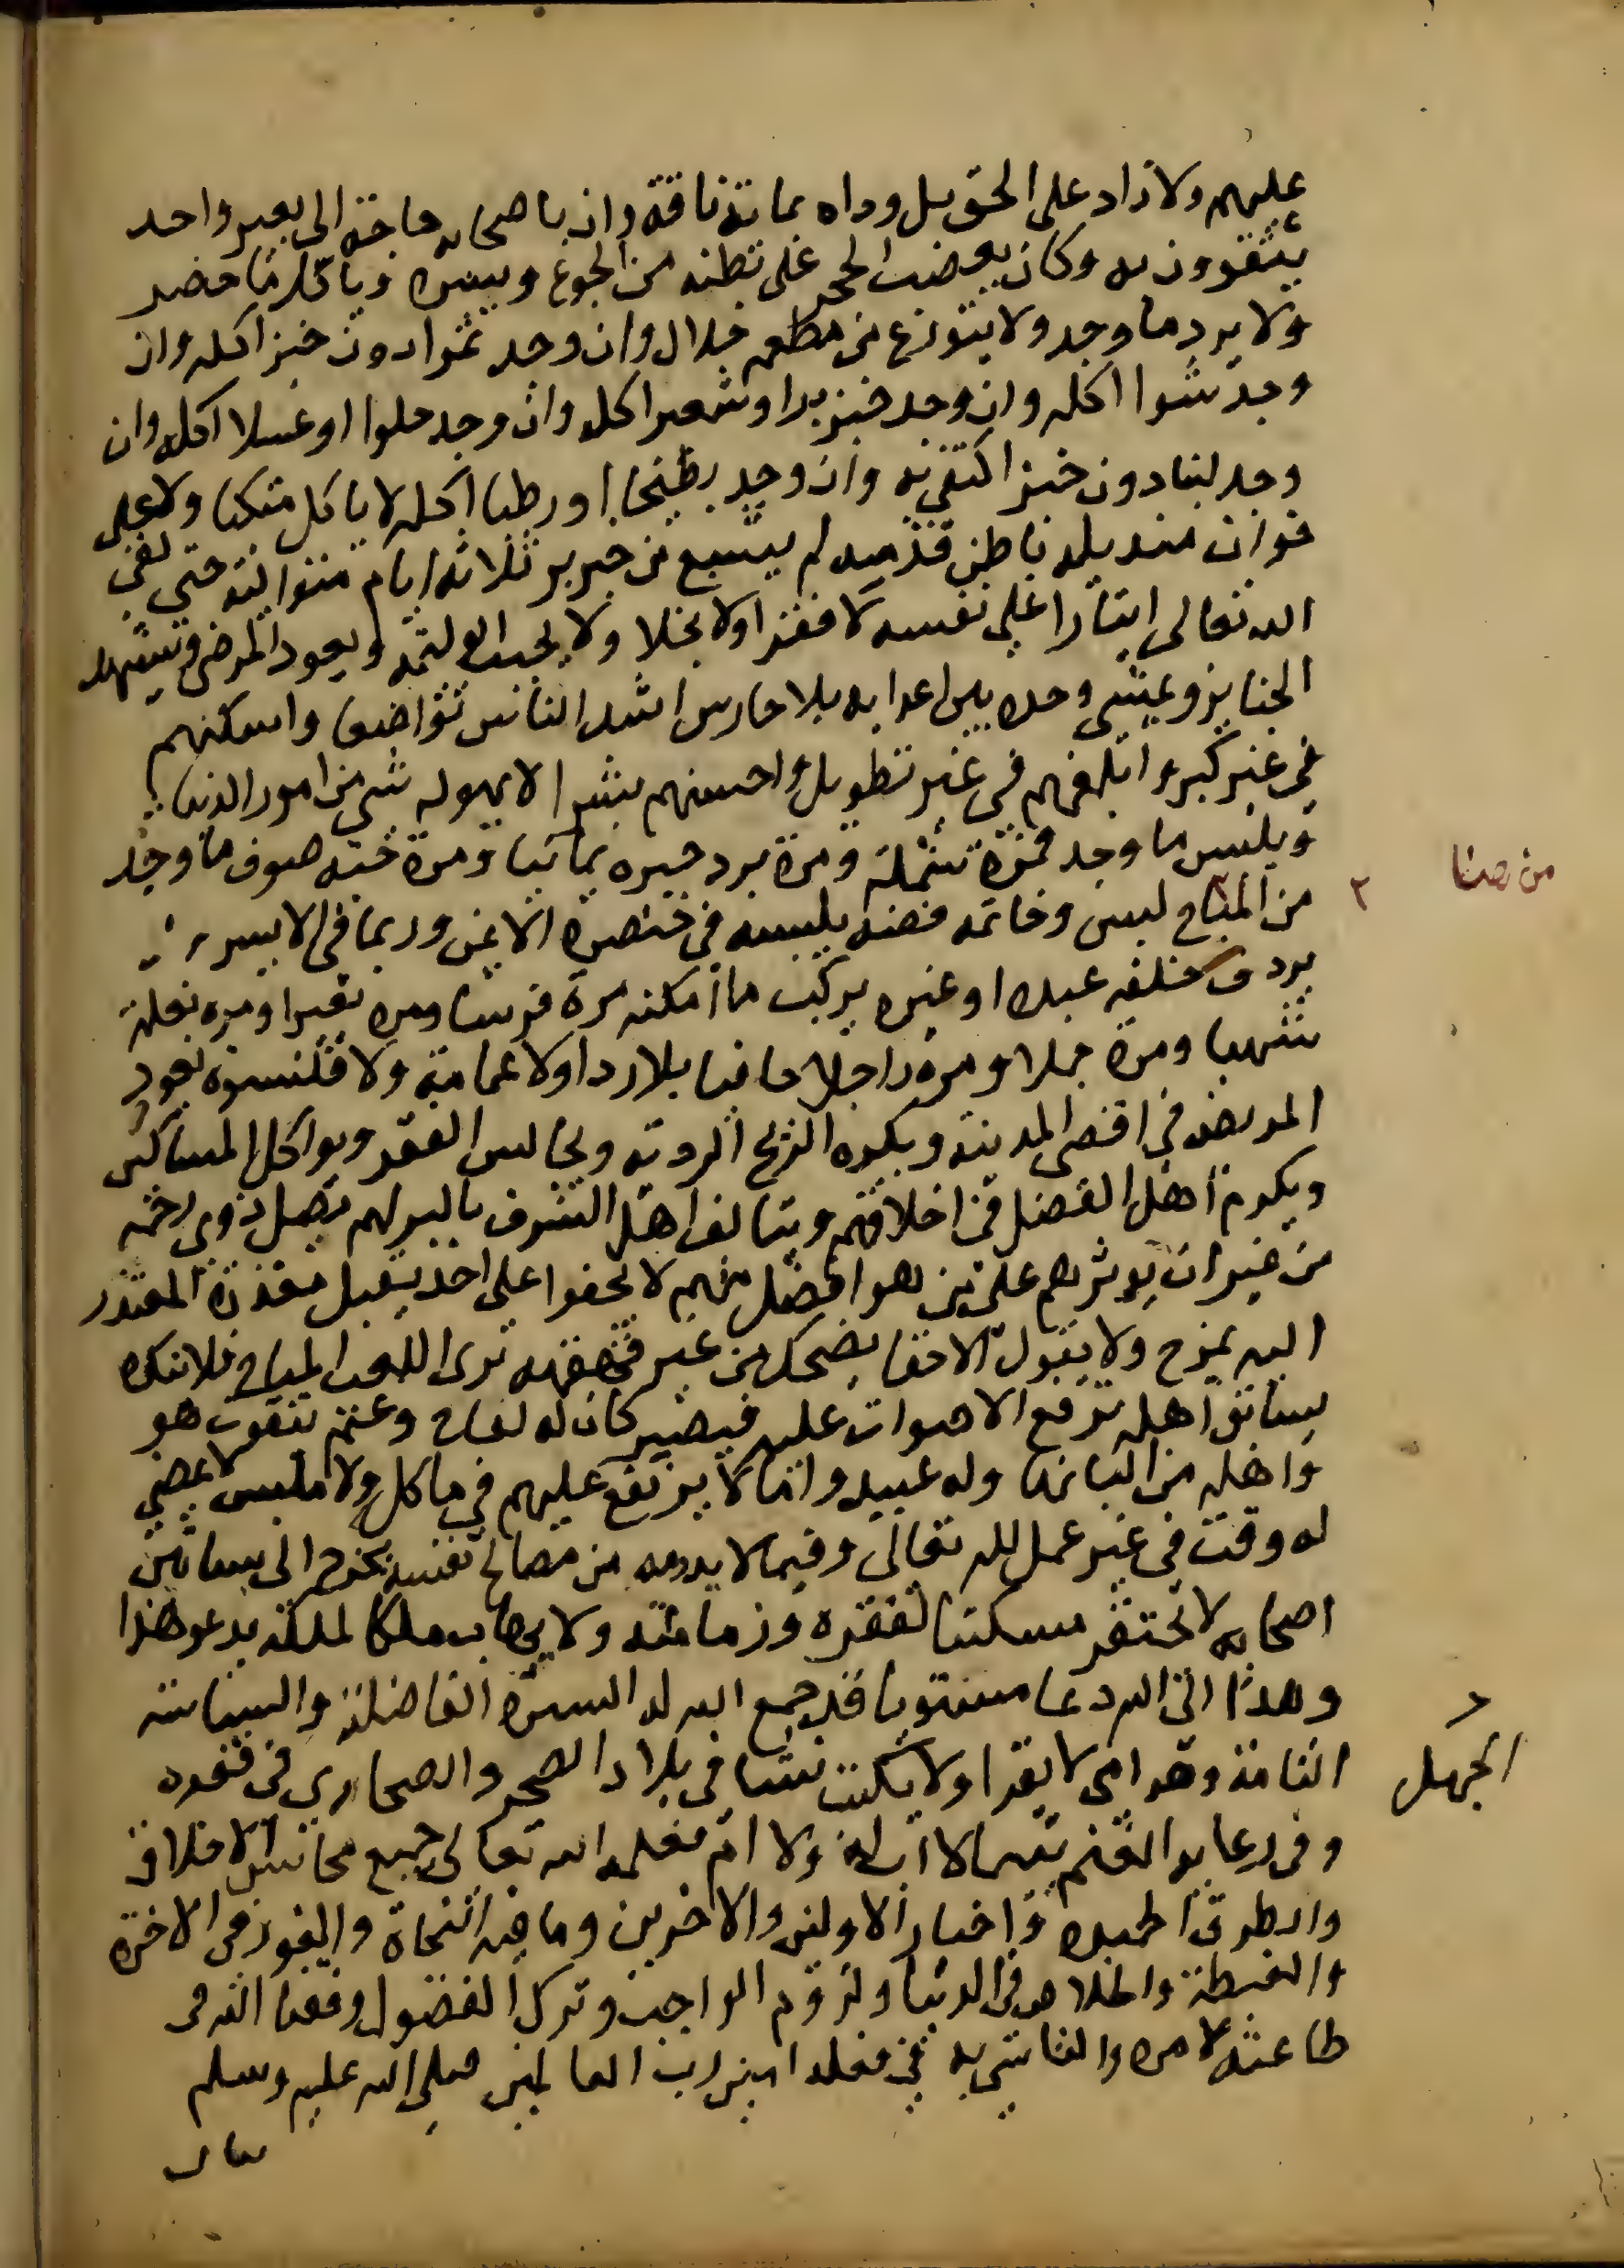 عليهم ولا زاد على الحق بل وداه بمائة ناقة وان باصحابه حاجة الى بعير واحد
يتقوون به وكان يعصب الحجر على بطنه من الجوع وياكل ما حضر
ولا يرد ما وجد ولا يتورع من مطعم حلال وان وجد تمرا دون خبز اكله وان
وجد شوا اكله وان وجد خبز برا وشعير اكله وان وجد حلوا او عسلا اكله وان
وجد لبنا دون خبز اكتفى به وان وجد بطيخا او رطبا اكله لا ياكل متكيا ولا على
خوان منديله باطن قدميه لم يشبع من خبز بر ثلاثة ايام متوالية حتى لقى
الله تعالى ايثارا على نفسه لا فقرا ولا بخلا ولا يجيب الوليمة ويعود المرضى ويشهد
الجنايز ويمشي وحده بين اعدايه بلا حارس اشد الناس تواضعا واسكنهم
في غير كبر وابلغهم في غير تطويل واحسنهم بشرا لا يهوله شي من امور الدنيا
ويلبس ما وجد فمرة شملة ومرة برد حبره يمانيا ومرة جبة صوف ما وجد
من المباح لبس وخاتمه فضة يلبسه في خنصره الايمن وربما في الايسر
يردف خلفه عبده او غيره يركب ما امكنه مرة فرسا ومره بعيرا ومره بغلة
شهبا ومرة جملا ومرة راجلا حافيا بلا ردا ولا عمامة ولا قلنسوة يعود
المريض في اقصى المدينة ويكره الريح الردية ويجالس الفقر ويواكل المساكين
ويكرم اهل الفضل في اخلاقهم ويتالف اهل الشرف بالبر لهم يصل ذوي رحمه
من غير ان يوثرهم على من هو افضل منهم لا يجفوا على احد يقبل معذرة المعتذر
اليه يمزح ولا يقول الا حقا يضحك من غير قهقهه يرى اللعب المباح فلا ينكره
يسابق اهله ترفع الاصوات عليه فيصبر كان له لقاح وغنم يتقوت هو
واهله من البانها وله عبيد واما لا يرتفع عليهم في ماكل ولا ملبس لا يمضي
له وقت في غير عمل لله تعالى وفيما لا بد منه من مصالح نفسه يخرج الى بساتين
اصحابه لا يحتقر مسكينا لفقره وزمانته ولا يهاب ملكا لملكه يدعو هذا
وهذا الى الله دعا مستويا قد جمع الله له السيرة الفاضلة والسياسة
التامة وهو امي لا يقرا ولا يكتب نشا في بلاد الجهل والصحاري في فقره
وفي رعايه الغنم يتيما لا اب له ولا ام فعلمه الله تعالى جميع محاسن الاخلاق
والطرق الحميدة واخبار الاولين والاخرين وما فيه النجاة والفوز في الاخرة
والغبطة والخلاص في الدنيا ولزوم الواجب وترك الفضول وفقنا الله في
طاعته لامره والتاسي به في فعله امين رب العالمين صلى الله عليه وسلم
الجهل